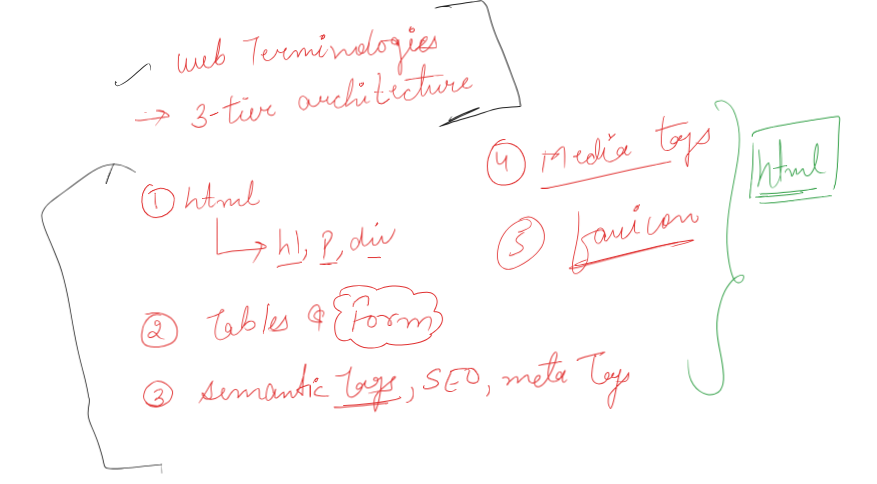 web Terminologies
→ 3-tier architecture
① html
h1, p, div
② Tables & Form
③ semantic Tags, SEO, meta Tags
④ Media tags
⑤ favicon
html